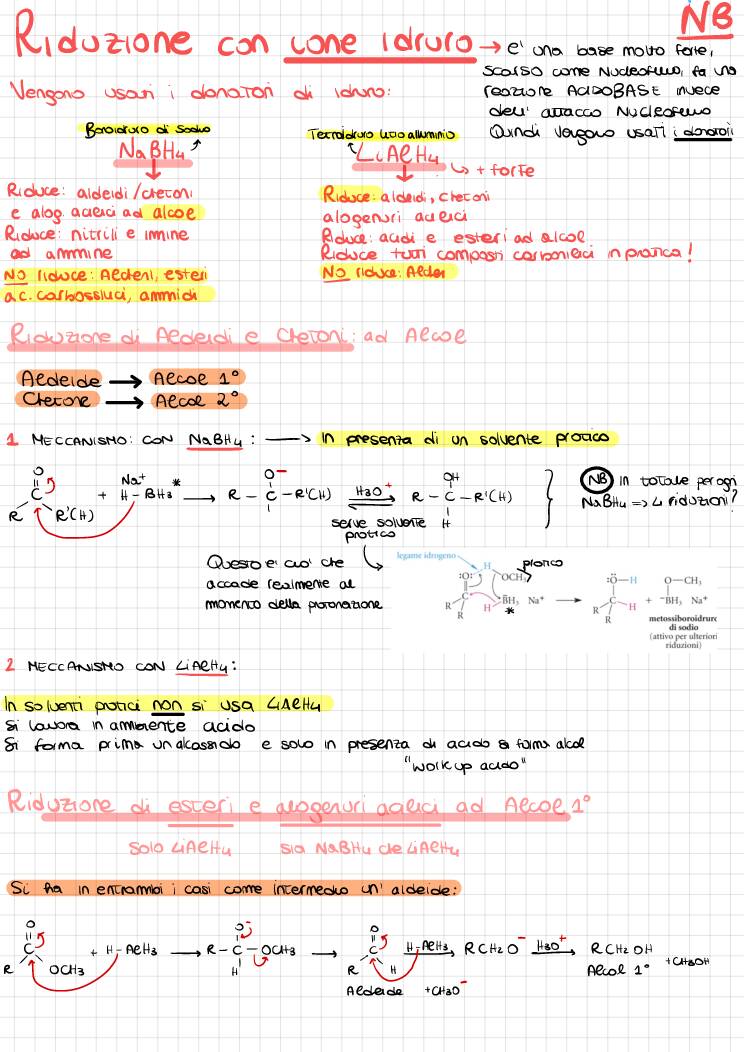 NB
Riduzione con ione idruro → e' una base molto forte,
scarso come Nucleofilo, fa una
reazione ACIDOBASE invece
dell' attacco Nucleofilo
Quindi vengono usati i donatori
Vengono usati i donatori di idruro:
Boroidruro di Sodio
NaBH4
Riduce: aldeidi/chetoni
e alog. acilici ad alcol
Riduce: nitrili e immine
ad ammine
NO riduce: Alcheni, esteri
a.c. carbossilici, ammidi
Tetraidruro litio alluminio
LiAlH4
↳ + forte
Riduce: aldeidi, chetoni
alogenuri acilici
Riduce: acidi e esteri ad alcol
Riduce tutti composti carbonilici in pratica!
NO riduce:
Riduzione di Aldeidi e Chetoni: ad Alcol
Aldeide → Alcol 1°
Chetone → Alcol 2°
1 MECCANISMO: CON NaBH4: → In presenza di un solvente protico
O
C
R R'(H)
+ Na+ H-BH3 *
→ O−
R - C - R'(H)
H3O+
serve solvente
protico
OH
R - C - R'(H)
H
NB In totale per ogni
NaBH4 => 4 riduzioni?
Questo e' cio' che
accade realmente al
momento della protonazione
legame idrogeno
H
:O: OCH3 protico
C
R R H BH3 Na+
*
→
:O—H
R C H
R
+
O—CH3
−BH3 Na+
metossiboroidruro
di sodio
(attivo per ulteriori
riduzioni)
2 MECCANISMO CON LiAlH4:
In solventi protici non si usa LiAlH4
Si lavora in ambiente acido
Si forma prima un alcossido e solo in presenza di acido si forma alcol
"work up acido"
Riduzione di esteri e alogenuri acilici ad Alcol 1°
Solo LiAlH4 sia NaBH4 che LiAlH4
Si ha in entrambi i casi come intermedio un' aldeide:
O
C
R OCH3
+ H-AlH3
→ O−
R - C - OCH3
H
→ O
C
R H
Aldeide +CH3O−
H-AlH3
→ RCH2O−
H3O+
→ RCH2OH
Alcol 1° +CH3OH